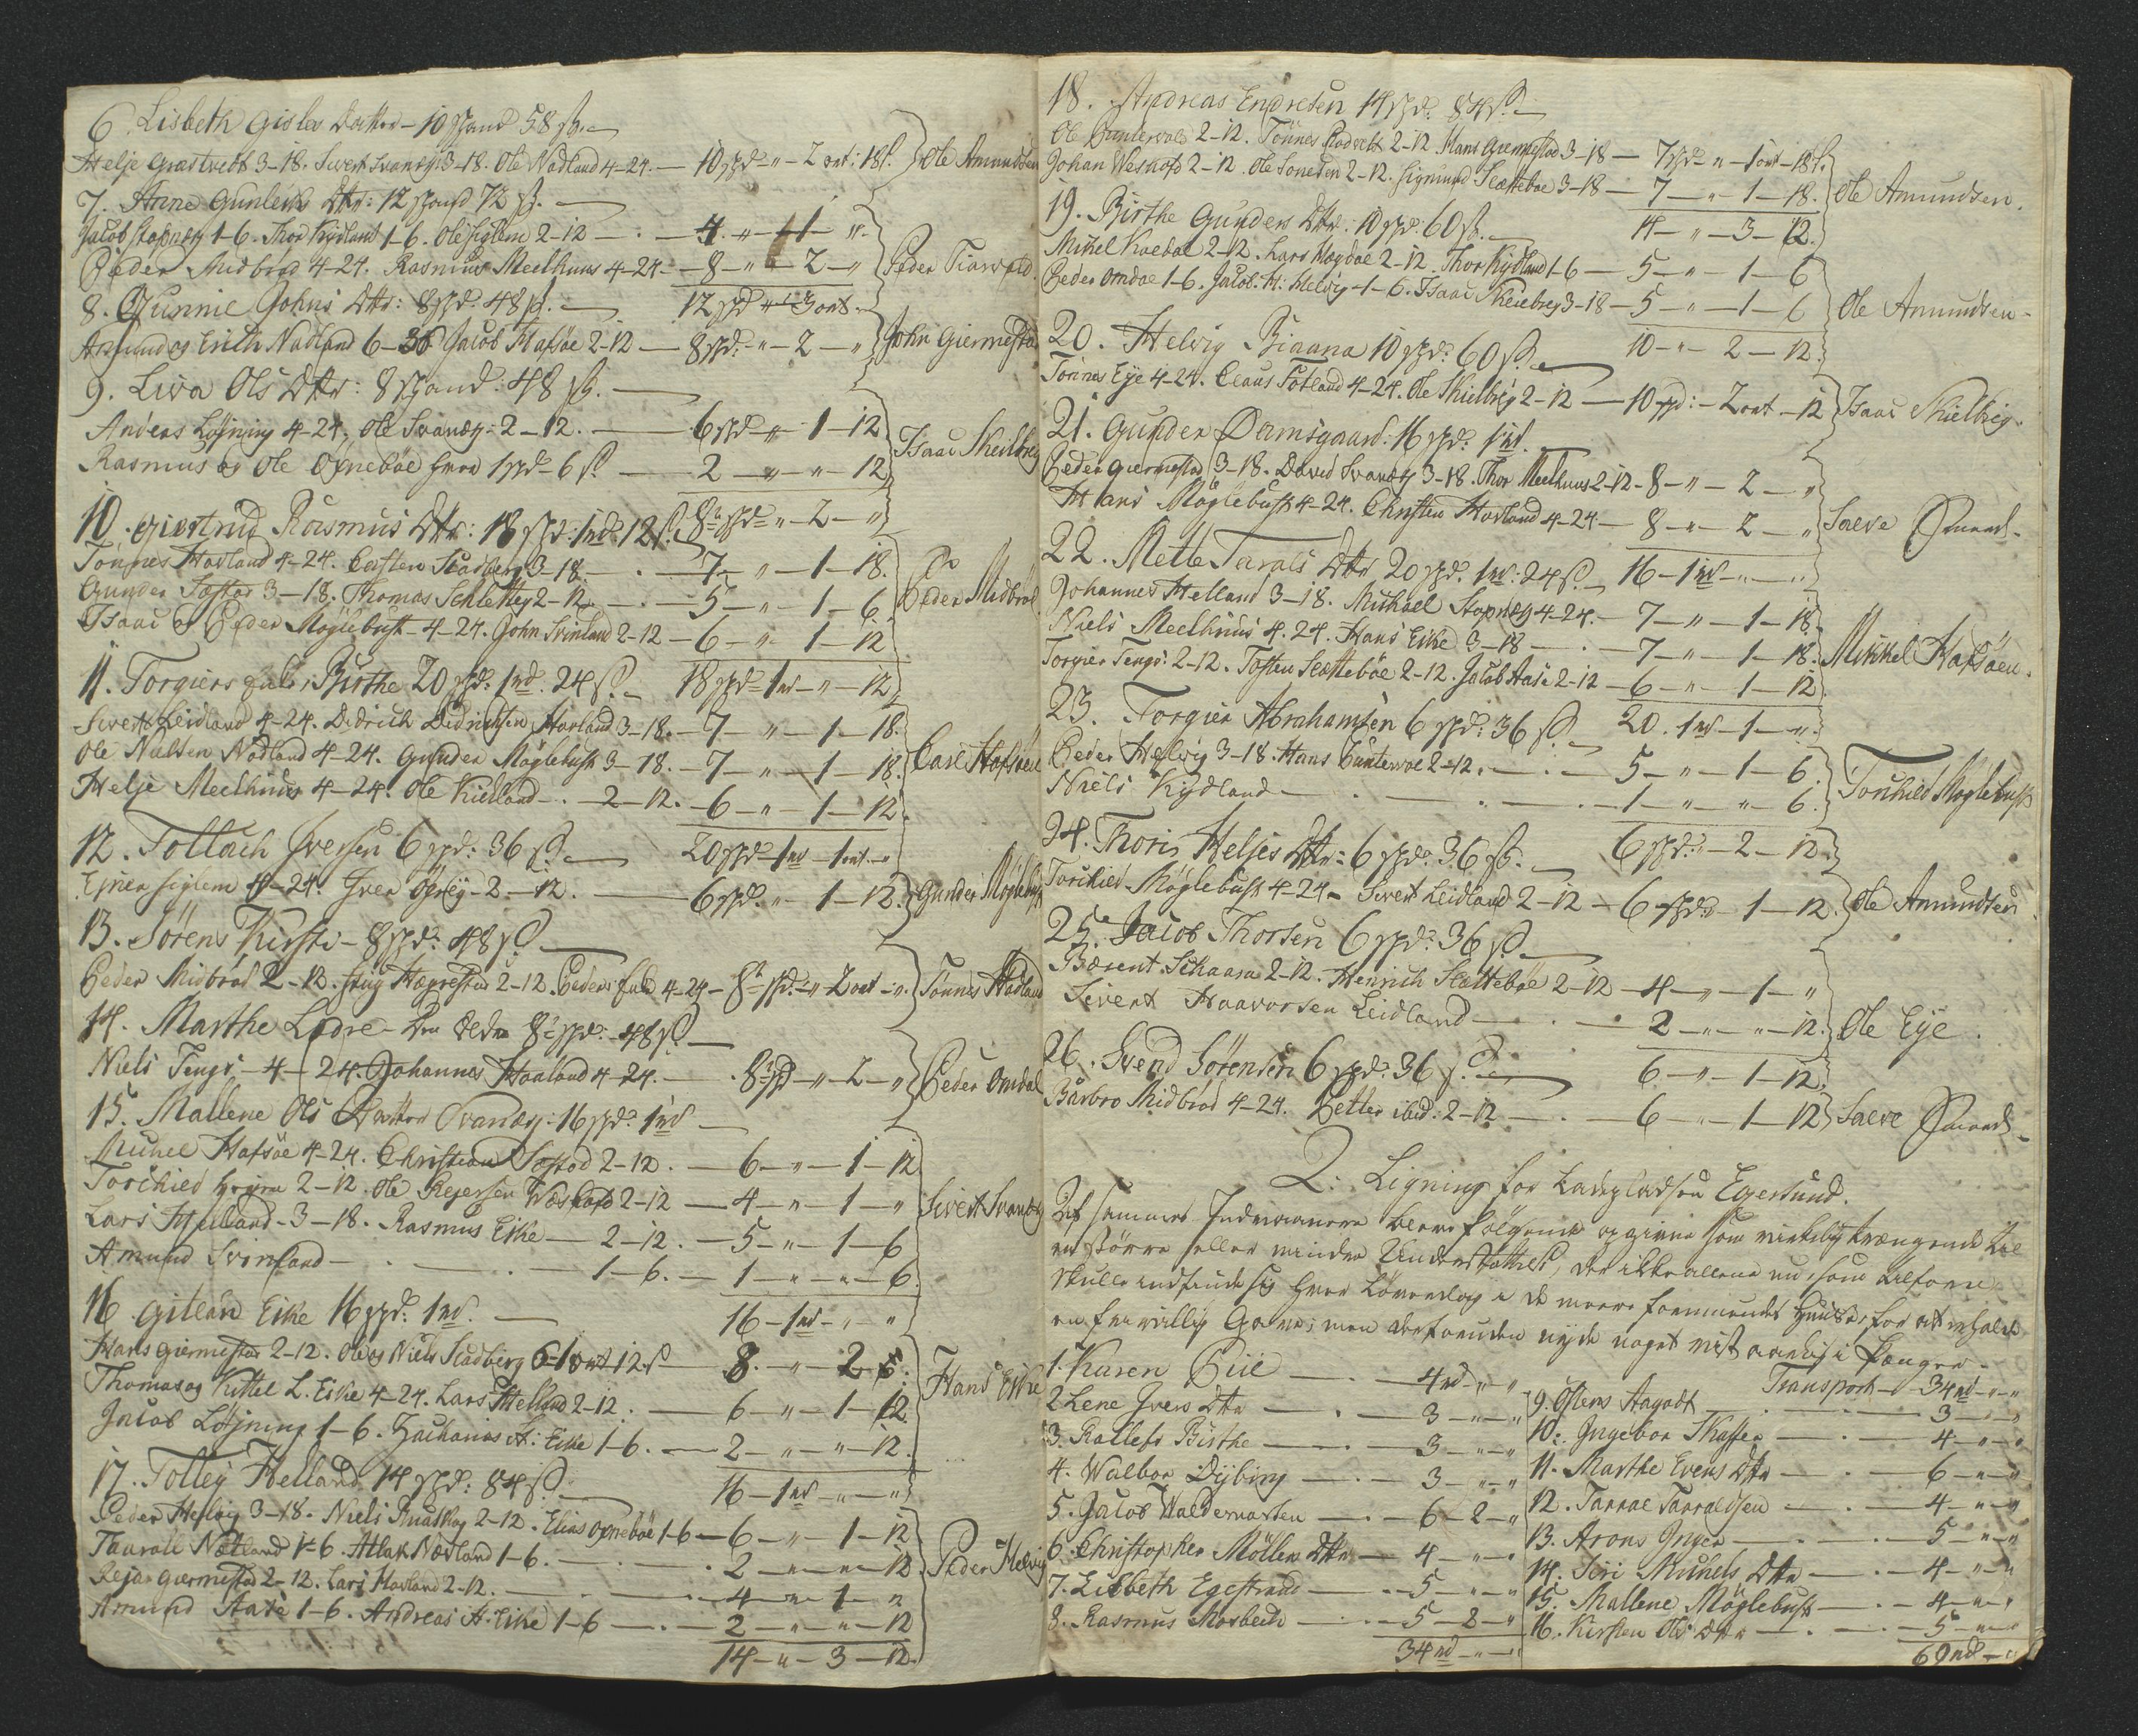 6. Lisbeth Gisles Datter - 10 spand 58 ß.
Helje Græstvedt 3-18. Sivert Svanes 3-18. Ole Nodland 4-24. — 10 spd - " - 2 ort: 18 ß. Ole Amundsen
7. Anne Gunleiks Dtr: 12 spand 72 ß.
Jacob Stapnes 1-6. Thor Kydland 1-6. Ole Siglem 2-12 — 4 - " - 1 - "
Peder Midbrød 4-24. Rasmus Meelhuus 4-24 - 8 - " - 2 - " Peder
8. Gunnil Johns Dtr: 8 spd. 48 ß. 12 spd - " - 3 ort.
Amund og Erich Nodland 6-36 Jacob Hafsøe 2-12 — 8 spd: - " - 2 - " John Giermestad
9. Liva Ols Dtr: 8 spand: 48 ß.
Anders Løjning 4-24. Ole Svanes: 2-12. — 6 spd - " - 1-12
Rasmus og Ole Opnebøe hver 1 spd - 6 ß — 2 - " - " 12 Isaac Skeibrey
8 spd - " - 2 - "
10. Giertrud Rasmus Dtr: 18 spd: 1 rd: 12 ß.
Tønnes Hovland 4-24. Carsten Stadberg 3-18. — 7 - " - 1-18.
Gunder Sæstad 3-18. Thomas Schletteg 2-12 — 5 - " - 1-6. Peder Midbrød
Isaac og Peder Møglebust - 4-24. John Svinland 2-12 - 6 - " 1-12
18 spd - 1 rd - " - 12
11. Torgiers Birthe 20 spd. 1 rd. 24 ß.
Sivert Leidland 4-24. Didrich Didrichsen Hovland 3-18. - 7 - " - 1-18.
Ole Nielsen Nodland 4-24. Gunder Møglebust 3-18. - 7 - " - 1-18. Carl Hafsøen
Helje Meelhuus 4-24. Ole Kielland - 2-12. - 6 - " - 1-12.
20 spd - 1 rd - 1 ort - "
12. Tollach Iversen 6 spd: 36 ß.
Ejner Siglem 4-24. Iver 2-12. — 6 spd. " - 1-12. Gunder Møglebust
13. Sørens Kirsti - 8 spd: 48 ß.
Peder Midbrød 2-12. Stig Hægrestad 2-12. Peder 4-24 - 8 spd: - " 2 ort - ". Tønnes Hadland
14. Marthe Lodve 8 spd: 48 ß.
Niels Tengs - 4-24. Johannes Hovland 4-24. — 8 spd - " - 2 - " Peder Omdal
15. Mallene Ols Datter Svanes: 16 spd: 1 rd
Michel Hafsøe 4-24. Christian Sæstad 2-12. — 6 - " - 1-12
Torkield 2-12. Ole Rejersen 2-12 — 4 - " - 1 - " Sivert Svanes
Lars Helland - 3-18. Rasmus Eike — 2-12. — 5 - " - 1-6
Amund Svinland — 1-6. — 1 - " - " - 6.
16 - 1 rd - " - "
16 Gitlau Eike 16 spd. 1 rd.
Hans Giermestad 2-12. Ole og Niels Stadberg 6-1 ort 12 ß — 8. - " - 2
Thomas og Kittel L. Eike 4-24. Lars Helland 2-12. — 6 - " - 1-12. Hans Eike
Jacob Løjning 1-6. Zacharias A: Eike 1-6. — 2 - " - " - 12.
16 - 1 rd - " - "
17. Tolley Helland 14 spd: 84 ß.
Peder Helvig 3-18. Niels Ruaskog 2-12. Elias Opnebøe 1-6 - 6 - " - 1-12
Taurall Nodland 1-6. Atlak Nodland 1-6. — 2 - " - " - 12. Peder Helvig
Rejar Giermestad 2-12. Lars Hovland 2-12. — 4 - " - 1 - "
Amund Aase 1-6. Andreas A. Eike 1-6 — 2 - " - " - 12
14 - " - 3 - 12.
18. Andreas Endresen 14 spd: 84 ß.
Ole 2-12. Tønnes 2-12 Hans Giermestad 3-18 — 7 spd - " - 1 ort - 18 ß.
Johan 2-12. Ole Soneden 2-12. Sigmund Slettebøe 3-18 — 7 - " - 1-18. Ole Amundsen.
14 - " - 3 - 12.
19. Birthe Gunders Dtr: 10 spd: 60 ß.
Mikel Koedal 2-12. Lars Hægdal 2-12. Thor Kydland 1-6 — 5 - " - 1 - 6
Peder Omdal 1-6. Jacob H: Helvig - 1-6. Isaac Skeiebrey 3-18 - 5 - " - 1 - 6 Ole Amundsen -
10 - " - 2 - 12.
20. Helvig Biaana 10 spd: 60 ß.
Tønnes Eje 4-24. Claus Fotland 4-24. Ole Skielbrey 2-12 — 10 spd: - 2 ort - 12 Isaac Skielbreg.
21. Gunder Damsgaard: 16 spd: 1 rd.
Peder Giermestad 3-18. David Svanes 3-18. Thor Meelhuus 2-12 - 8 - " - 2 - "
Hans Møglebust 4-24. Christen Hovland 4-24 - 8 - " - 2 - " Salve
16 - 1 rd - " - "
22. Mette Taralds Dtr 20 spd. 1 rd: 24 ß.
Johannes Helland 3-18. Michael Stapnes 4-24. - 7 - " - 1-18
Niels Meelhuus 4.24. Hans Eike 3-18 — 7 - " - 1-18. Mikkel Hafsøen.
Torgier Tengs: 2-12. Tosten Slettebøe 2-12. Jacob Aase 2-12 - 6 - " - 1-12
20. 1 rd - 1 - "
23. Torgier Abrahamsen 6 spd: 36 ß.
Peder Helvig 3-18. Hans 2-12. — 5 - " - 1-6
Niels Kydland — 1 - " - " 6. Torkield Møglebust
6 spd: - 2 - 12.
24. Thoris Heljes Dtr: 6 spd. 36 ß.
Torkield Møglebust 4-24 - Sivert Leidland 2-12 - 6 spd - 1-12. Ole Amundsen
25. Jacob Thorsen 6 spd: 36 ß
Bærent Schaara 2-12. Henrich Slettebøe 2-12 - 4 - " - 1 - "
Sivert Haavorsen Leidland — 2 - " - " - 12. Ole Eje.
6 - " - 1 - 12.
26. Svend Sørensen 6 spd: 36 ß.
Barbro Midbrød 4-24. Petter ibid: 2-12 — 6 - " - 1-12 Salve
2: Ligning for Ladepladsen Egersund.
Af sammes Indvaanere bleve følgende opgivne som virkelig trængende til
en større eller mindre Understøttelse, der ikke allene nu, som tilforn
skulle indfinde sig hver Løverdag i de mere formuende Huuse, for at erholde
en frivillig Gave; men desforuden nyde noget vist aarlig i Penge.
1. Karen Piil — 4 rd - " - "
2 Lene Ivers Dtr — 3 - " - "
3. Rollefs Birthe — 3 - " - "
4. Walbor Dÿbing — 3 - " - "
5. Jacob Waldemarsen — 6 - 2 - "
6. Christopher Møllers Dtr — 4 - " - "
7. Lisbeth Egestrand — 5 - " - "
8. Rasmus Mosbech — 5 - 2 - "
34 rd - " - "
Transport - 34 rd - " - "
9. Ostens Aagodt — 3 - " - "
10. Ingebor Skaffer — 4 - " - "
11. Marthe Evens Dtr — 6 - " - "
12. Tarrae Tarraldsen — 4 - " - "
13. Arons Inger — 5 - " - "
14. Siri Michels Dtr — 4 - " - "
15. Mallene Møglebust — 4 - " - "
16. Kirsten Ols Dtr — 5 - " - "
69 rd - "